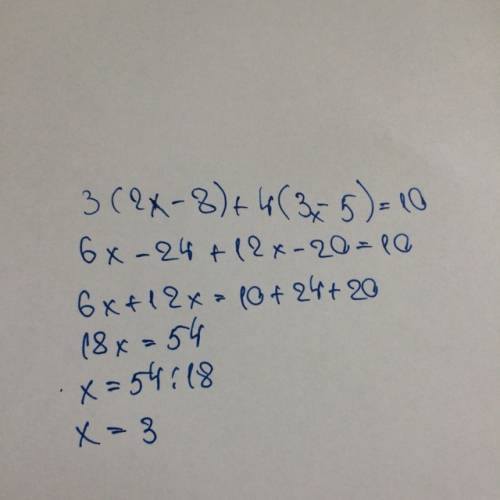 3(2x-8)+4(3x-5)=10
6x-24+12x-20=10
6x+12x=10+24+20
18x=54
x=54:18
x=3